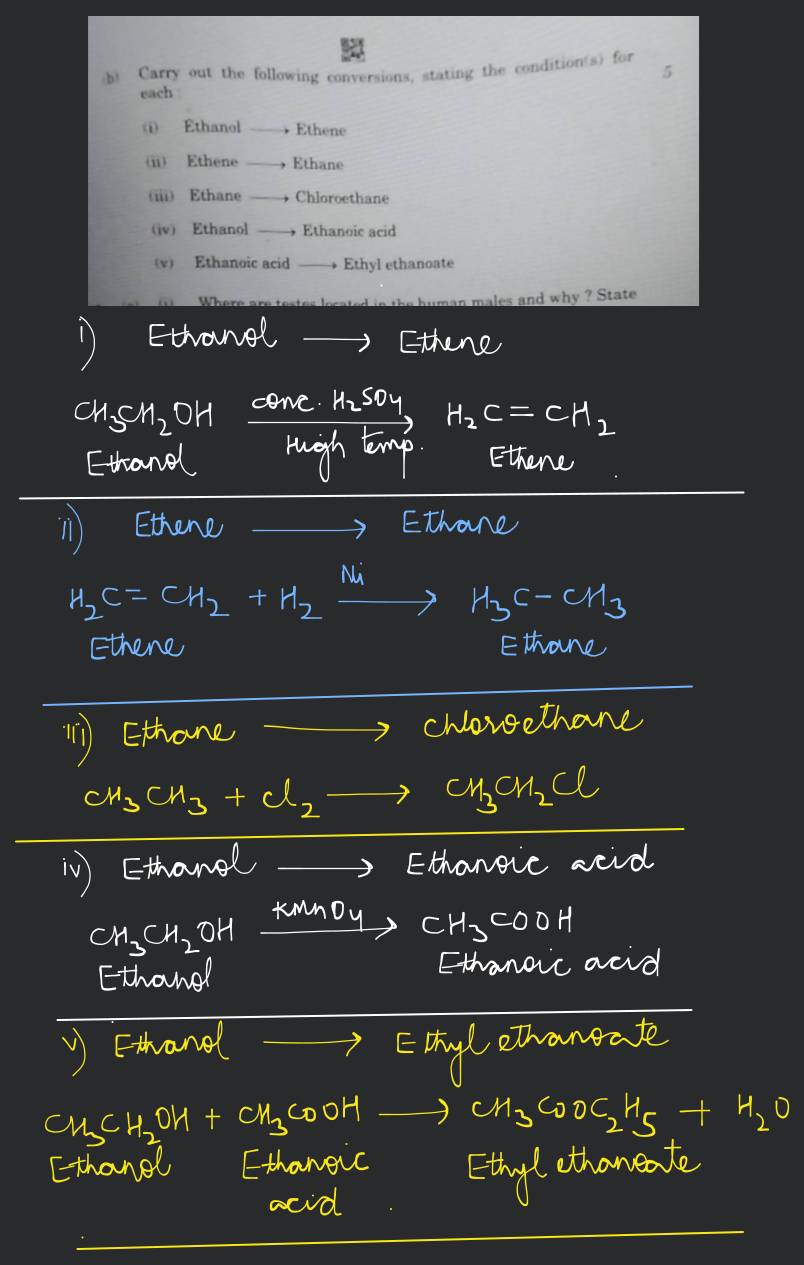 b) Carry out the following conversions, stating the condition(s) for 5
each
(i) Ethanol ⟶ Ethene
(ii) Ethene ⟶ Ethane
(iii) Ethane ⟶ Chloroethane
(iv) Ethanol ⟶ Ethanoic acid
(v) Ethanoic acid ⟶ Ethyl ethanoate
(i) Where are testes located in the human males and why ? State
i) Ethanol ⟶ Ethene
conc. H₂SO₄
CH₃CH₂OH ⟶ H₂C=CH₂
High temp.
Ethanol Ethene
ii) Ethene ⟶ Ethane
Ni
H₂C=CH₂ + H₂ ⟶ H₃C-CH₃
Ethene Ethane
iii) Ethane ⟶ chloroethane
CH₃CH₃ + Cl₂ ⟶ CH₃CH₂Cl
iv) Ethanol ⟶ Ethanoic acid
KMnO₄
CH₃CH₂OH ⟶ CH₃COOH
Ethanol Ethanoic acid
v) Ethanol ⟶ Ethyl ethanoate
CH₃CH₂OH + CH₃COOH ⟶ CH₃COOC₂H₅ + H₂O
Ethanol Ethanoic Ethyl ethanoate
acid